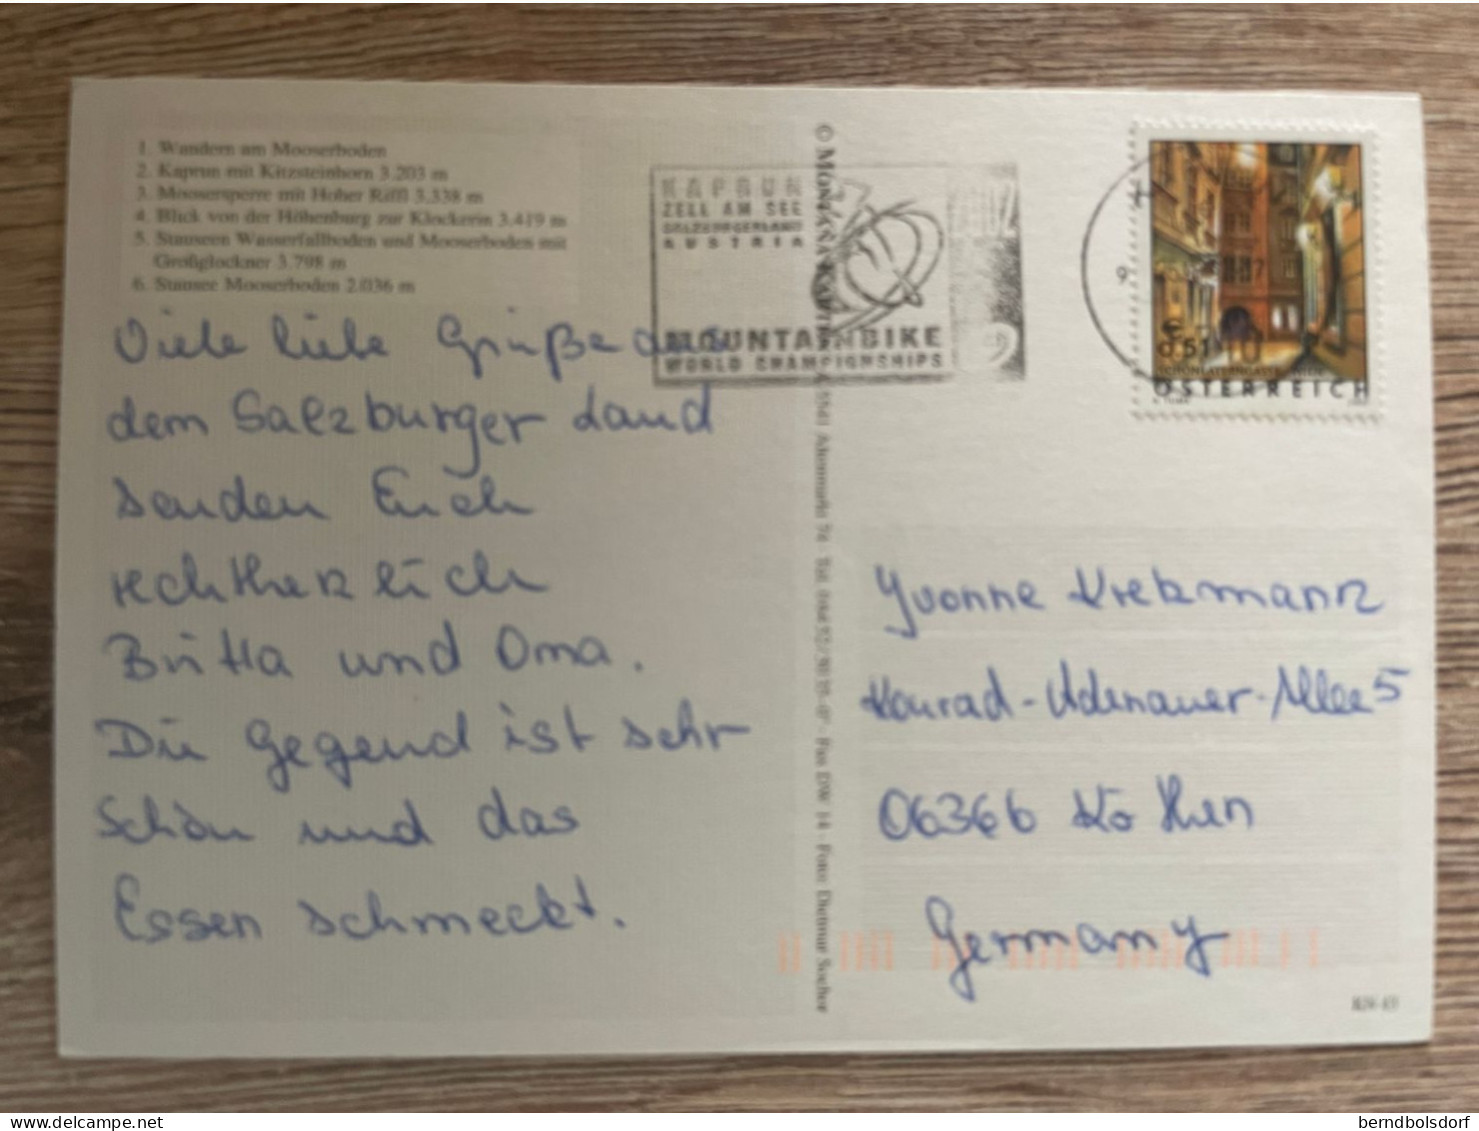 1. Wandern am Mooserboden
2. Kaprun mit Kitzsteinhorn 3.203 m
3. Moosersperre mit Hoher Riffl 3.338 m
4. Blick von der Höhenburg zur Klockerin 3.419 m
5. Stauseen Wasserfallboden und Mooserboden mit
Großglockner 3.798 m
6. Stausee Mooserboden 2.036 m
Viele liebe Grüße aus
dem Salzburger Land
senden Euch
rechtherzlich
Britta und Oma.
Die Gegend ist sehr
schön und das
Essen schmeckt.
KAPRUN
ZELL AM SEE
SALZBURGERLAND
AUSTRIA
MOUNTAINBIKE
WORLD CHAMPIONSHIPS
ÖSTERREICH
Foto Dietmar Sochor
Yvonne Kretzmann
Konrad-Adenauer-Allee 5
06366 Köthen
Germany
berndbolsdorf